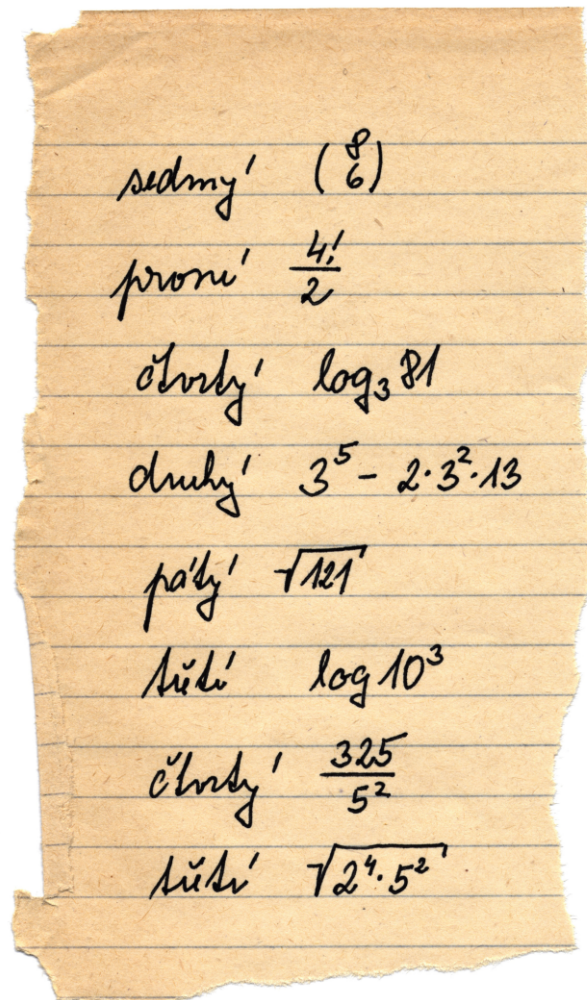 sedmý (8 6)
první 4!/2
čtvrtý log₃ 81
druhý 3⁵ - 2·3²·13
pátý √121
třetí log 10³
čtvrtý 325/5²
třetí √2⁴·5²